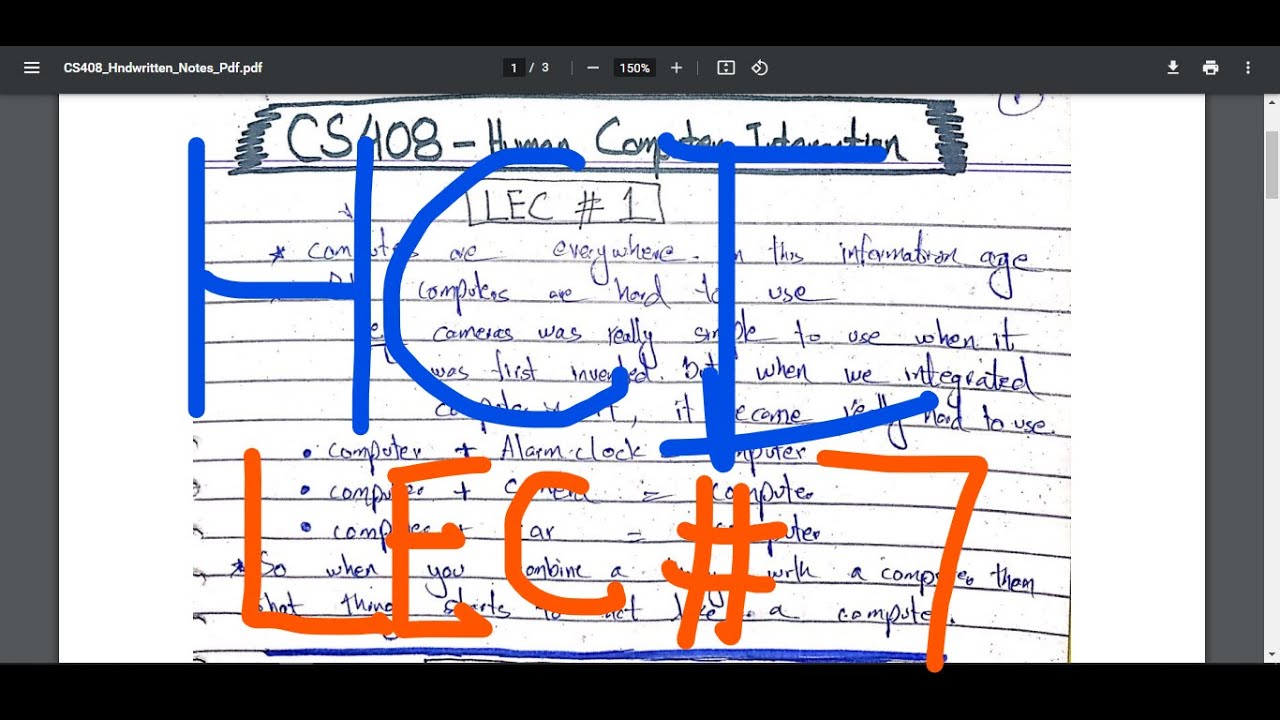 CS408_Hndwritten_Notes_Pdf.pdf
1 / 3
150%
CS408 - Human Computer Interaction
HCI
LEC # 1
* computers are everywhere. in this information age
computers are hard to use
cameras was really simple to use when it
was first invented. But when we integrated
computer it, it became really hard to use.
• computer + Alarm-clock computer
• computer + camera = computer
• computer + car = computer
* So when you combine a with a computer then
that thing starts to act like a computer.
LEC # 7